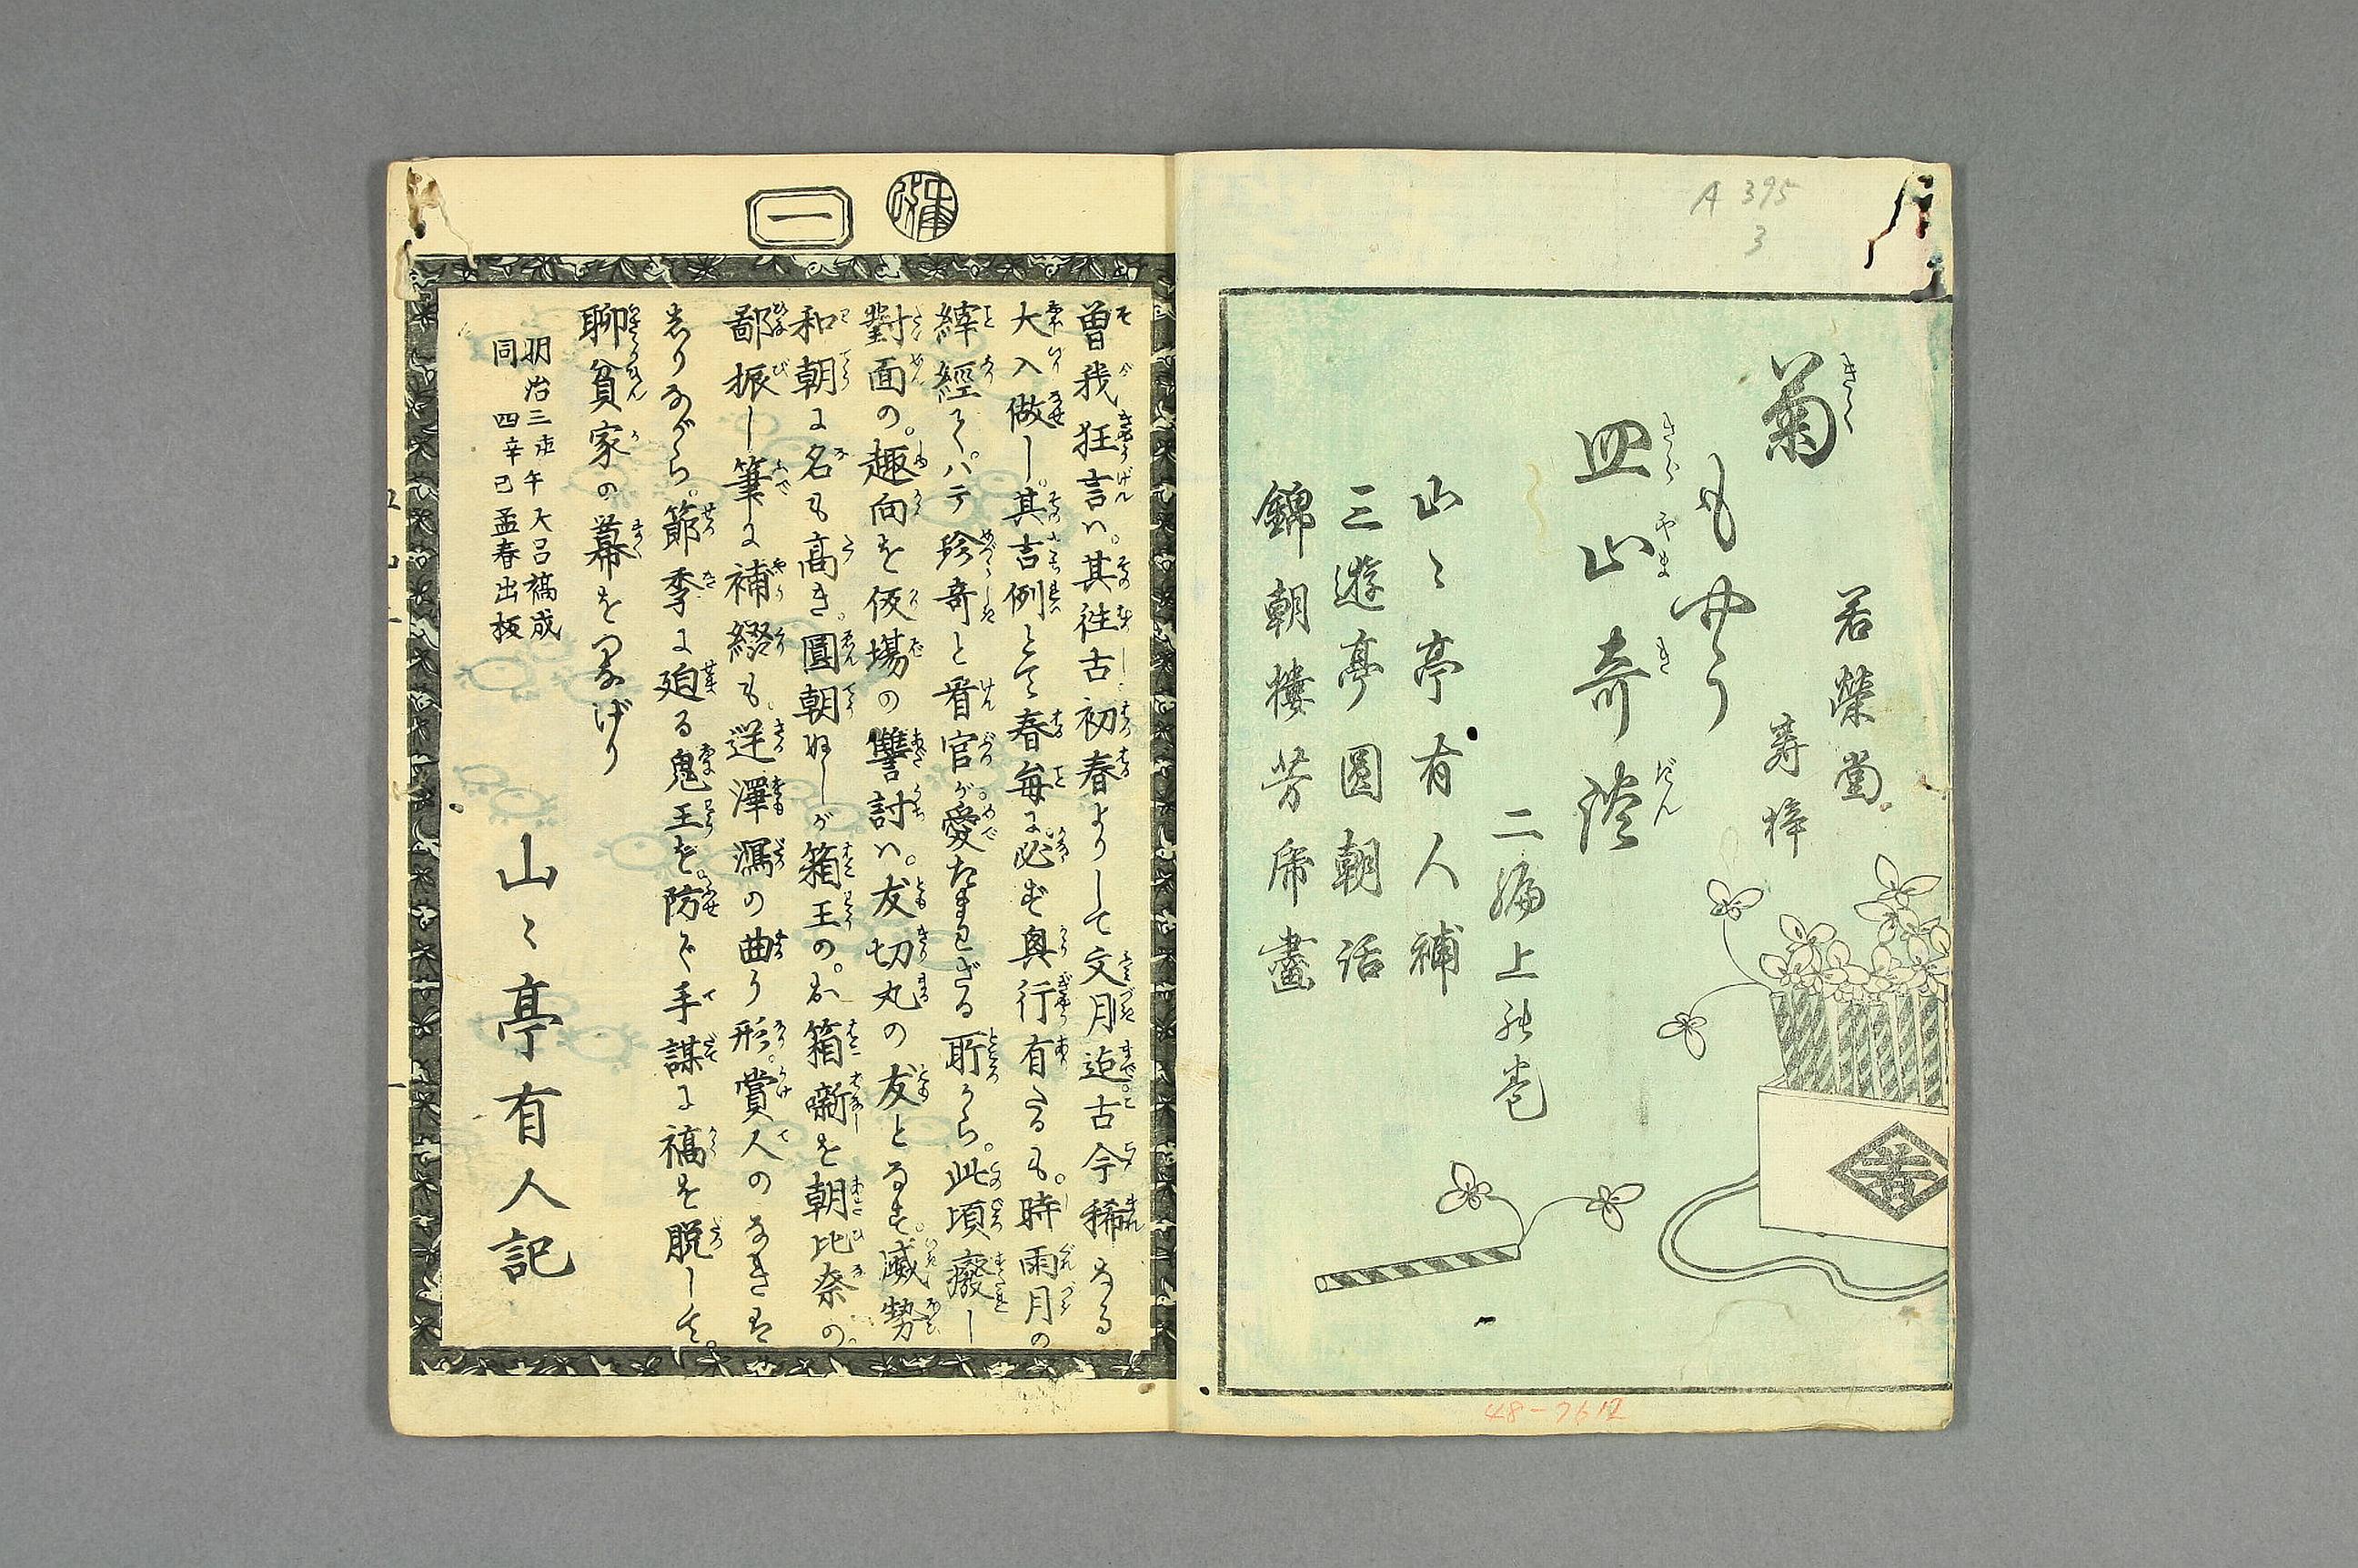 A 395
3
若榮堂
壽梓
菊
きく
もやう
皿山奇談
さらやまきだん
二編上の巻
山〻亭有人補
三遊亭圓朝話
錦朝樓芳虎畫
若
48-7612
改
一
曽我狂言ハ。其徃古初春よりして文月迄古今稀なる
大入做し。其吉例とて春毎に必ず興行有たるも。時雨月の
縡經てハ。ハテ珍奇と看官が愛たまはざる所から。此頃癈し
對面の。趣向を仮塲の讐討ハ。友切丸の友となす。威勢
和朝に名も高き。圓朝ぬしが箱王の。お箱噺を朝比奈の。
鄙振し筆に補綴も。逆澤瀉の曲り形。賞人のなきは
しりながら。節季に廻る鬼王を。防ぐ手謀に稿を脱して。
聊貧家の幕をつなげり
明治三庚午大呂稿成
同四辛巳孟春出板
山〻亭有人記